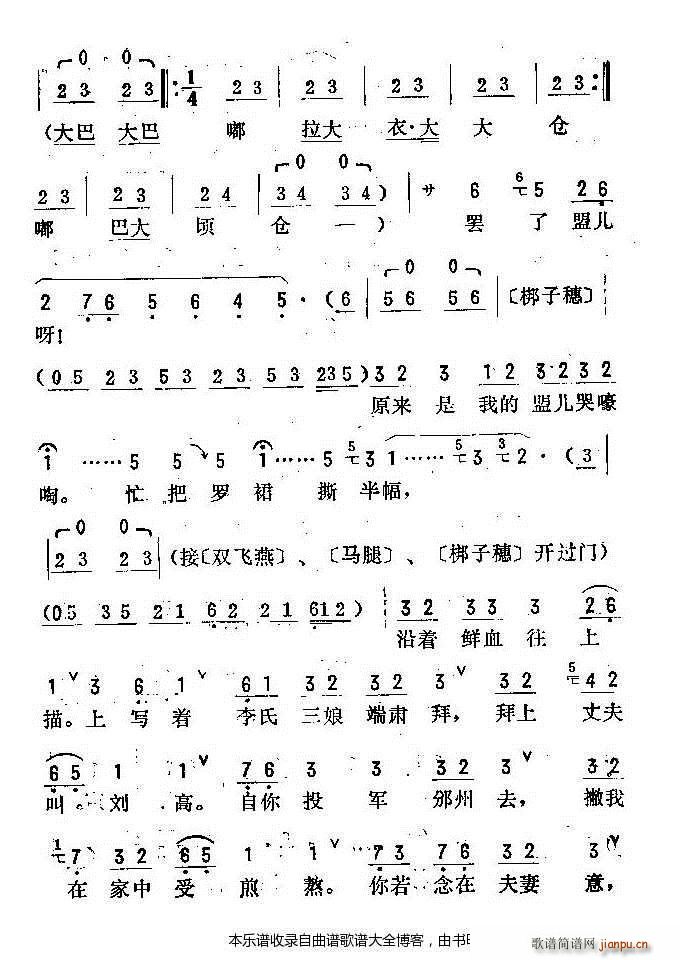 0 0 0 0
2 3 2 3 1/4 2 3 2 3 2 3 2 3
(大巴 大巴 嘟 拉大 衣·大 大 仓
0 0
2 3 2 3 2 4 3 4 3 4) サ 6 5 2 6
嘟 巴大 顷 仓 一) 罢 了 盟儿
0 0
2 7 6 5 6 4 5 · (6 5 6 5 6 〔梆子穗〕
呀!
(0 5 2 3 5 3 2 3 5 3 2 3 5) 3 2 3 1 2 3 2 3 2
原来 是 我的 盟儿哭嚎
1 …… 5 5 5 1 …… 5 3 1 …… 3 2 · (3
啕。 忙 把 罗 裙 撕 半幅,
0 0
2 3 2 3 (接〔双飞燕〕、〔马腿〕、〔梆子穗〕开过门)
(0 5 3 5 2 1 6 2 2 1 6 1 2) 3 2 3 3 3 2 6
沿着 鲜血 往 上
1 3 6 1 3 6 3 2 3 2 3 3 2 4 2
描。上 写 着 李氏 三娘 端肃 拜, 拜上 丈夫
6 5 1 1 7 6 3 3 2 6 2 3 3 2
叫 刘 高。 自你 投 军 邠州 去, 撇我
7 3 2 6 5 1 1 7 6 6 2 3 2 3
在 家中 受 煎 熬。 你若 念在 夫妻 意,
本乐谱收录自曲谱歌谱大全博客,由书
歌谱简谱网
jianpu.cn